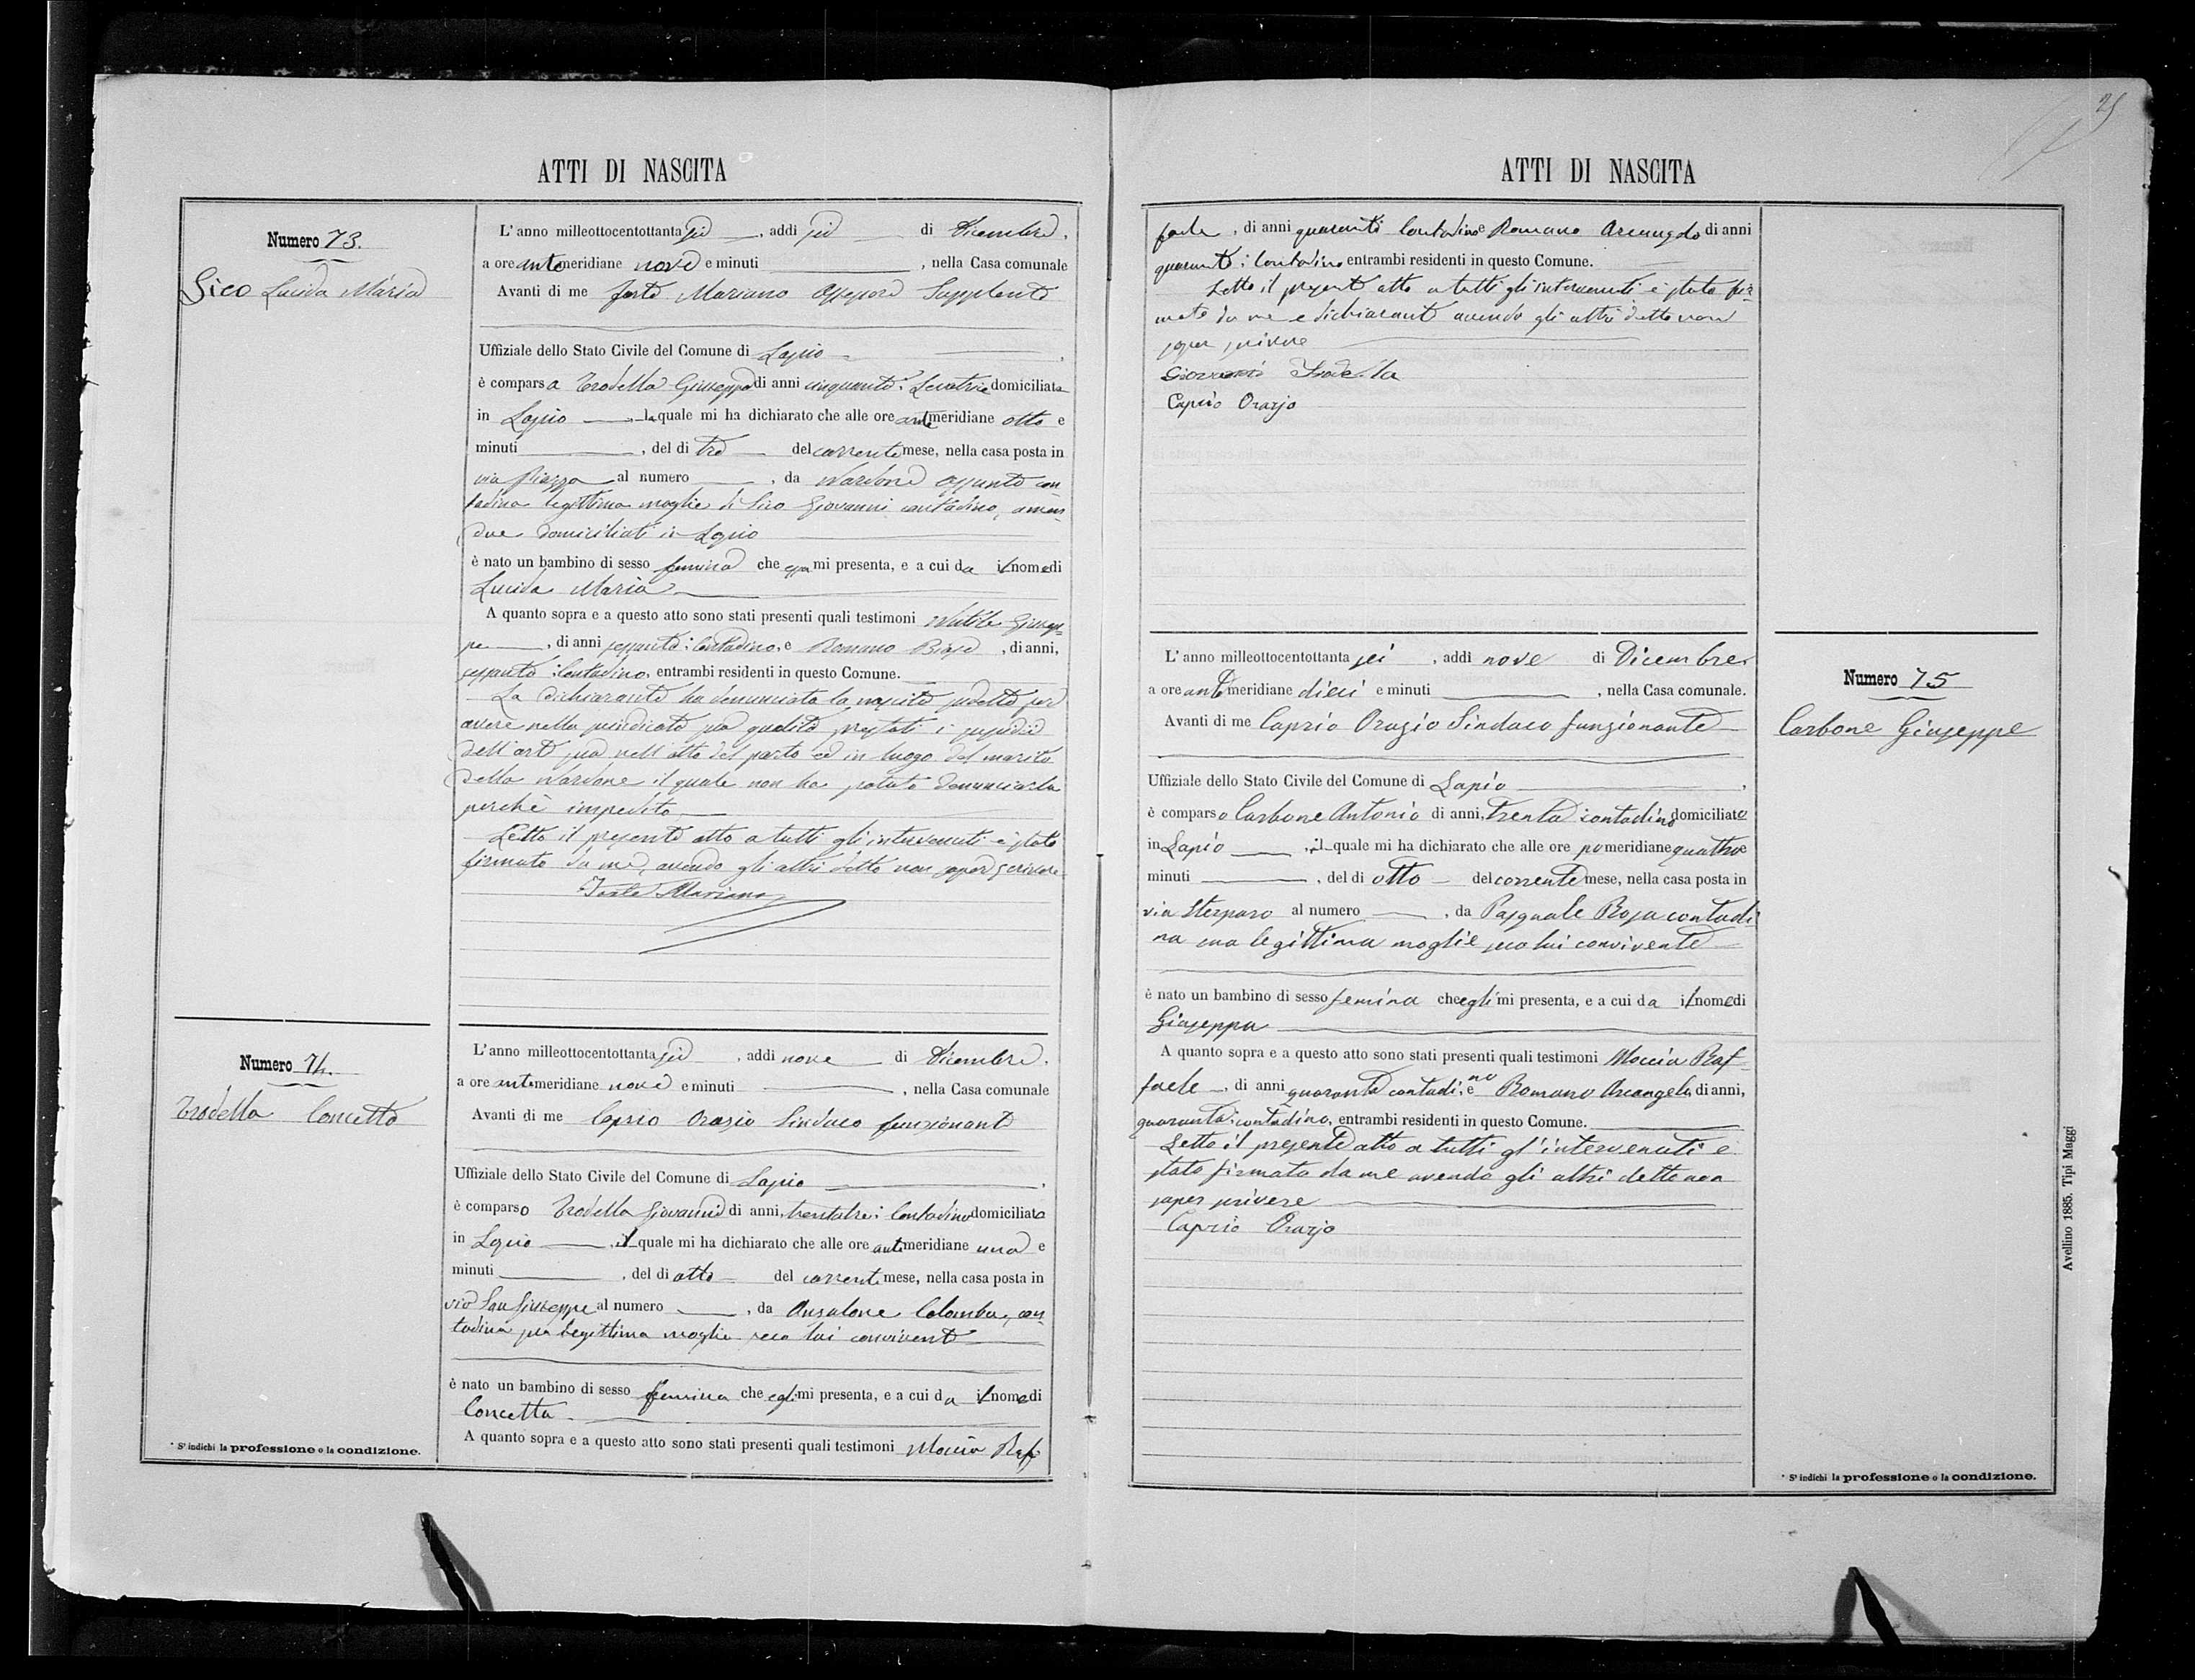 25
ATTI DI NASCITA
Numero 73.
Sico Lucida Maria
L'anno milleottocentottanta sei, addì sei di Dicembre,
a ore antemeridiane nove e minuti, nella Casa comunale
Avanti di me Forte Mariano Assessore Supplente
Uffiziale dello Stato Civile del Comune di Lapio
è comparsa Trodella Giuseppa di anni cinquanta: Levatrice domiciliata
in Lapio la quale mi ha dichiarato che alle ore antemeridiane otto e
minuti, del dì tre del corrente mese, nella casa posta in
via Piazza al numero, da Nardone Assunta con
tadina legittima moglie di Sico Giovanni contadino, amen
due domiciliati in Lapio
è nato un bambino di sesso femina che essa mi presenta, e a cui da il nome di
Lucida Maria
A quanto sopra e a questo atto sono stati presenti quali testimoni Giusep
pe, di anni sessanta: Contadino, e Romano Biase, di anni,
sessanta: Contadino, entrambi residenti in questo Comune.
La dichiarante ha denunciato la nascita sudetta per
avere nella suindicata sua qualità prestati i sussidii
dell'arte sua nell'atto del parto ed in luogo del marito
della Nardone il quale non ha potuto denunciarla
perchè impedito
Letto il presente atto a tutti gli intervenuti è stato
firmato da me, avendo gli altri detto non saper scrivere
Forte Mariano
Numero 74.
Trodella Concetta
L'anno milleottocentottanta sei, addì nove di Dicembre,
a ore antimeridiane nove e minuti, nella Casa comunale
Avanti di me Caprio Orazio Sindaco funzionante
Uffiziale dello Stato Civile del Comune di Lapio
è comparso Trodella Giovanni di anni, trentatre: Contadino domiciliato
in Lapio, il quale mi ha dichiarato che alle ore antimeridiane una e
minuti, del dì otto del corrente mese, nella casa posta in
via San Giuseppe al numero, da Ansalone Colomba, con
tadina sua legittima moglie seco lui convivente
è nato un bambino di sesso femina che egli mi presenta, e a cui da il nome di
Concetta
A quanto sopra e a questo atto sono stati presenti quali testimoni Moccia Raf
* S'indichi la professione o la condizione.
ATTI DI NASCITA
faele, di anni quaranta Contadino e Romano Arcangelo di anni
quaranta: Contadino entrambi residenti in questo Comune.
Letto il presente atto a tutti gli intervenuti è stato fir
mato da me e dichiarante avendo gli altri detto non
saper scrivere
Giovanni Trodella
Caprio Orazjo
Numero 75
Carbone Giuseppe
L'anno milleottocentottanta sei, addì nove di Dicembre
a ore antemeridiane dieci e minuti, nella Casa comunale.
Avanti di me Caprio Orazio Sindaco funzionante
Uffiziale dello Stato Civile del Comune di Lapio
è comparso Carbone Antonio di anni, trenta contadino domiciliato
in Lapio, il quale mi ha dichiarato che alle ore pomeridiane quattro e
minuti, del dì otto del corrente mese, nella casa posta in
via Sterparo al numero, da Pasquale Rosa contadi
na sua legittima moglie seco lui convivente
è nato un bambino di sesso femina che egli mi presenta, e a cui da il nome di
Giuseppa
A quanto sopra e a questo atto sono stati presenti quali testimoni Moccia Raf
faele, di anni quaranta contadino, e Romano Arcangelo, di anni,
quaranta: contadino, entrambi residenti in questo Comune.
Letto il presente atto a tutti gl'intervenuti è
stato firmato da me avendo gli altri detto non
saper scrivere
Caprio Orazjo
* S'indichi la professione o la condizione.
Avellino 1885. Tipi Maggi